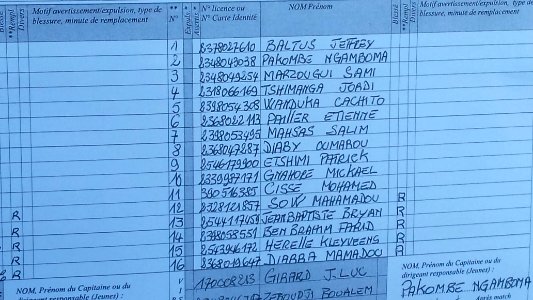 Motif avertissement/expulsion, type de blessure, minute de remplacement
**Rempl
Divers
**
N°
N° licence ou N° Carte Identité
NOM Prénom
Blessé
**Rempl
Divers
Motif avertissement/expulsion, type de blessure, minute de remplacement
1 BALTUS JEFFEY
2 2348043038 PAKOMBE NGAMBOMA
3 2348049254 MARZOUGUI SAMI
4 2318066169 TSHIMANGA JORDI
5 2398054308 WANDUKA CACHITO
6 2368022113 PAILLER ETIENNE
7 2398053495 MAHSAS SALIM
8 2368047287 DIABY OUMAROU
9 2546179900 ETSHIMI PATRICK
10 2339937171 GNAHORE MICKAEL
11 CISSE MOHAMED
R 12 2328121857 SOW MAHAMADOU R
R 13 JEAN BAPTISTE BRYAN R
R 14 2398058551 BEN BRAHIM FARID R
R 15 HERELLE KLEYVEENS R
R 16 DIABIRA MAMADOU R
NOM, Prénom du Capitaine ou du dirigeant responsable (Jeunes) :
GIRARD J.LUC
BOUALEM
NOM, Prénom du Capitaine ou du dirigeant responsable (Jeunes) :
PAKOMBE NGAMBOMA
Après match